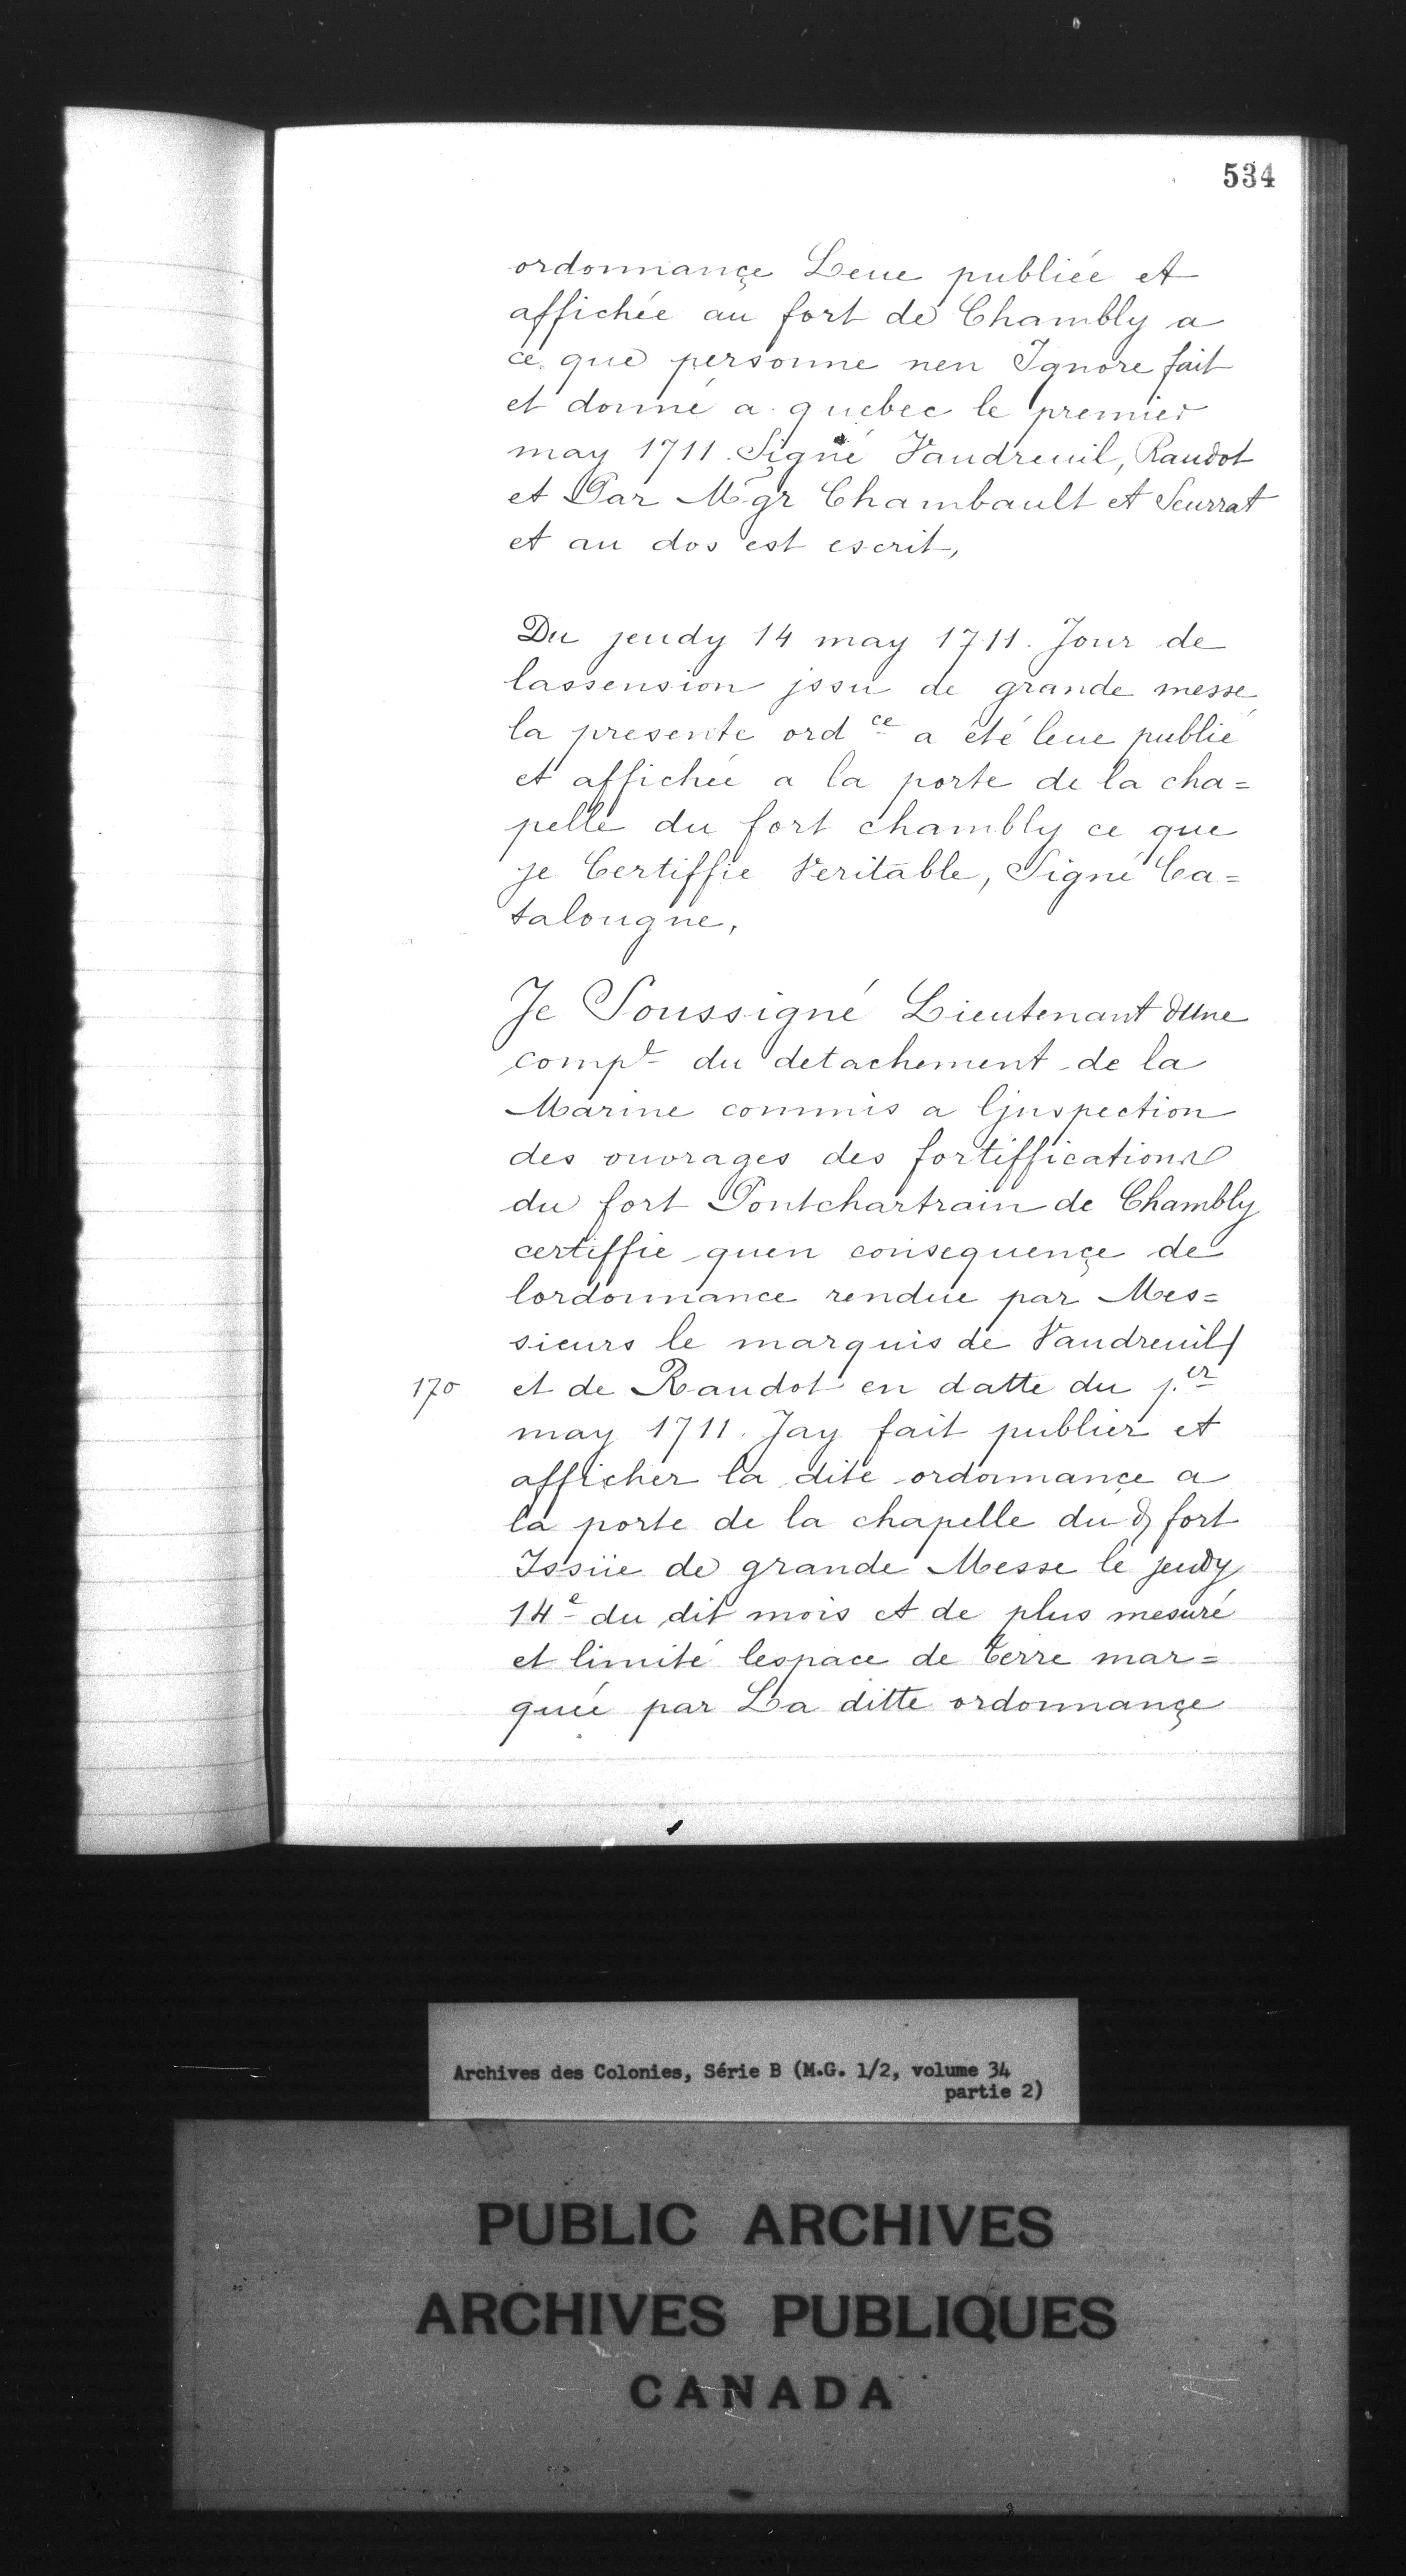 534
ordonnançe Leue publiée et
affichée au fort de Chambly a
ce que personne nen Ignore fait
et donné a quebec le premier
may 1711. Signé Vaudreuil, Raudot
et Par Mgr Chambault et Seurrat
et au dos est escrit,
Du jeudy 14 may 1711. Jour de
lassension jssu de grande messe
la presente ord ce a été leue publié
et affichée a la porte de la cha=
pelle du fort chambly ce que
je Certiffie Veritable, Signé Ca=
talougne,
Je Soussigné Lieutenant dune
comp e du detachement de la
Marine commis a ljnspection
des ouvrages des fortiffications
du fort Pontchartrain de Chambly
certiffie quen consequençe de
lordonnance rendue par Mes=
sieurs le marquis de Vaudreuil
170 et de Raudot en datte du p.er
may 1711. Jay fait publier et
afficher la dite ordonnançe a
la porte de la chapelle du d fort
Issüe de grande Messe le jeudy
14e du dit mois et de plus mesuré
et limité lespace de terre mar=
quée par La ditte ordonnançe
Archives des Colonies, Série B (M.G. 1/2, volume 34
partie 2)
PUBLIC ARCHIVES
ARCHIVES PUBLIQUES
CANADA